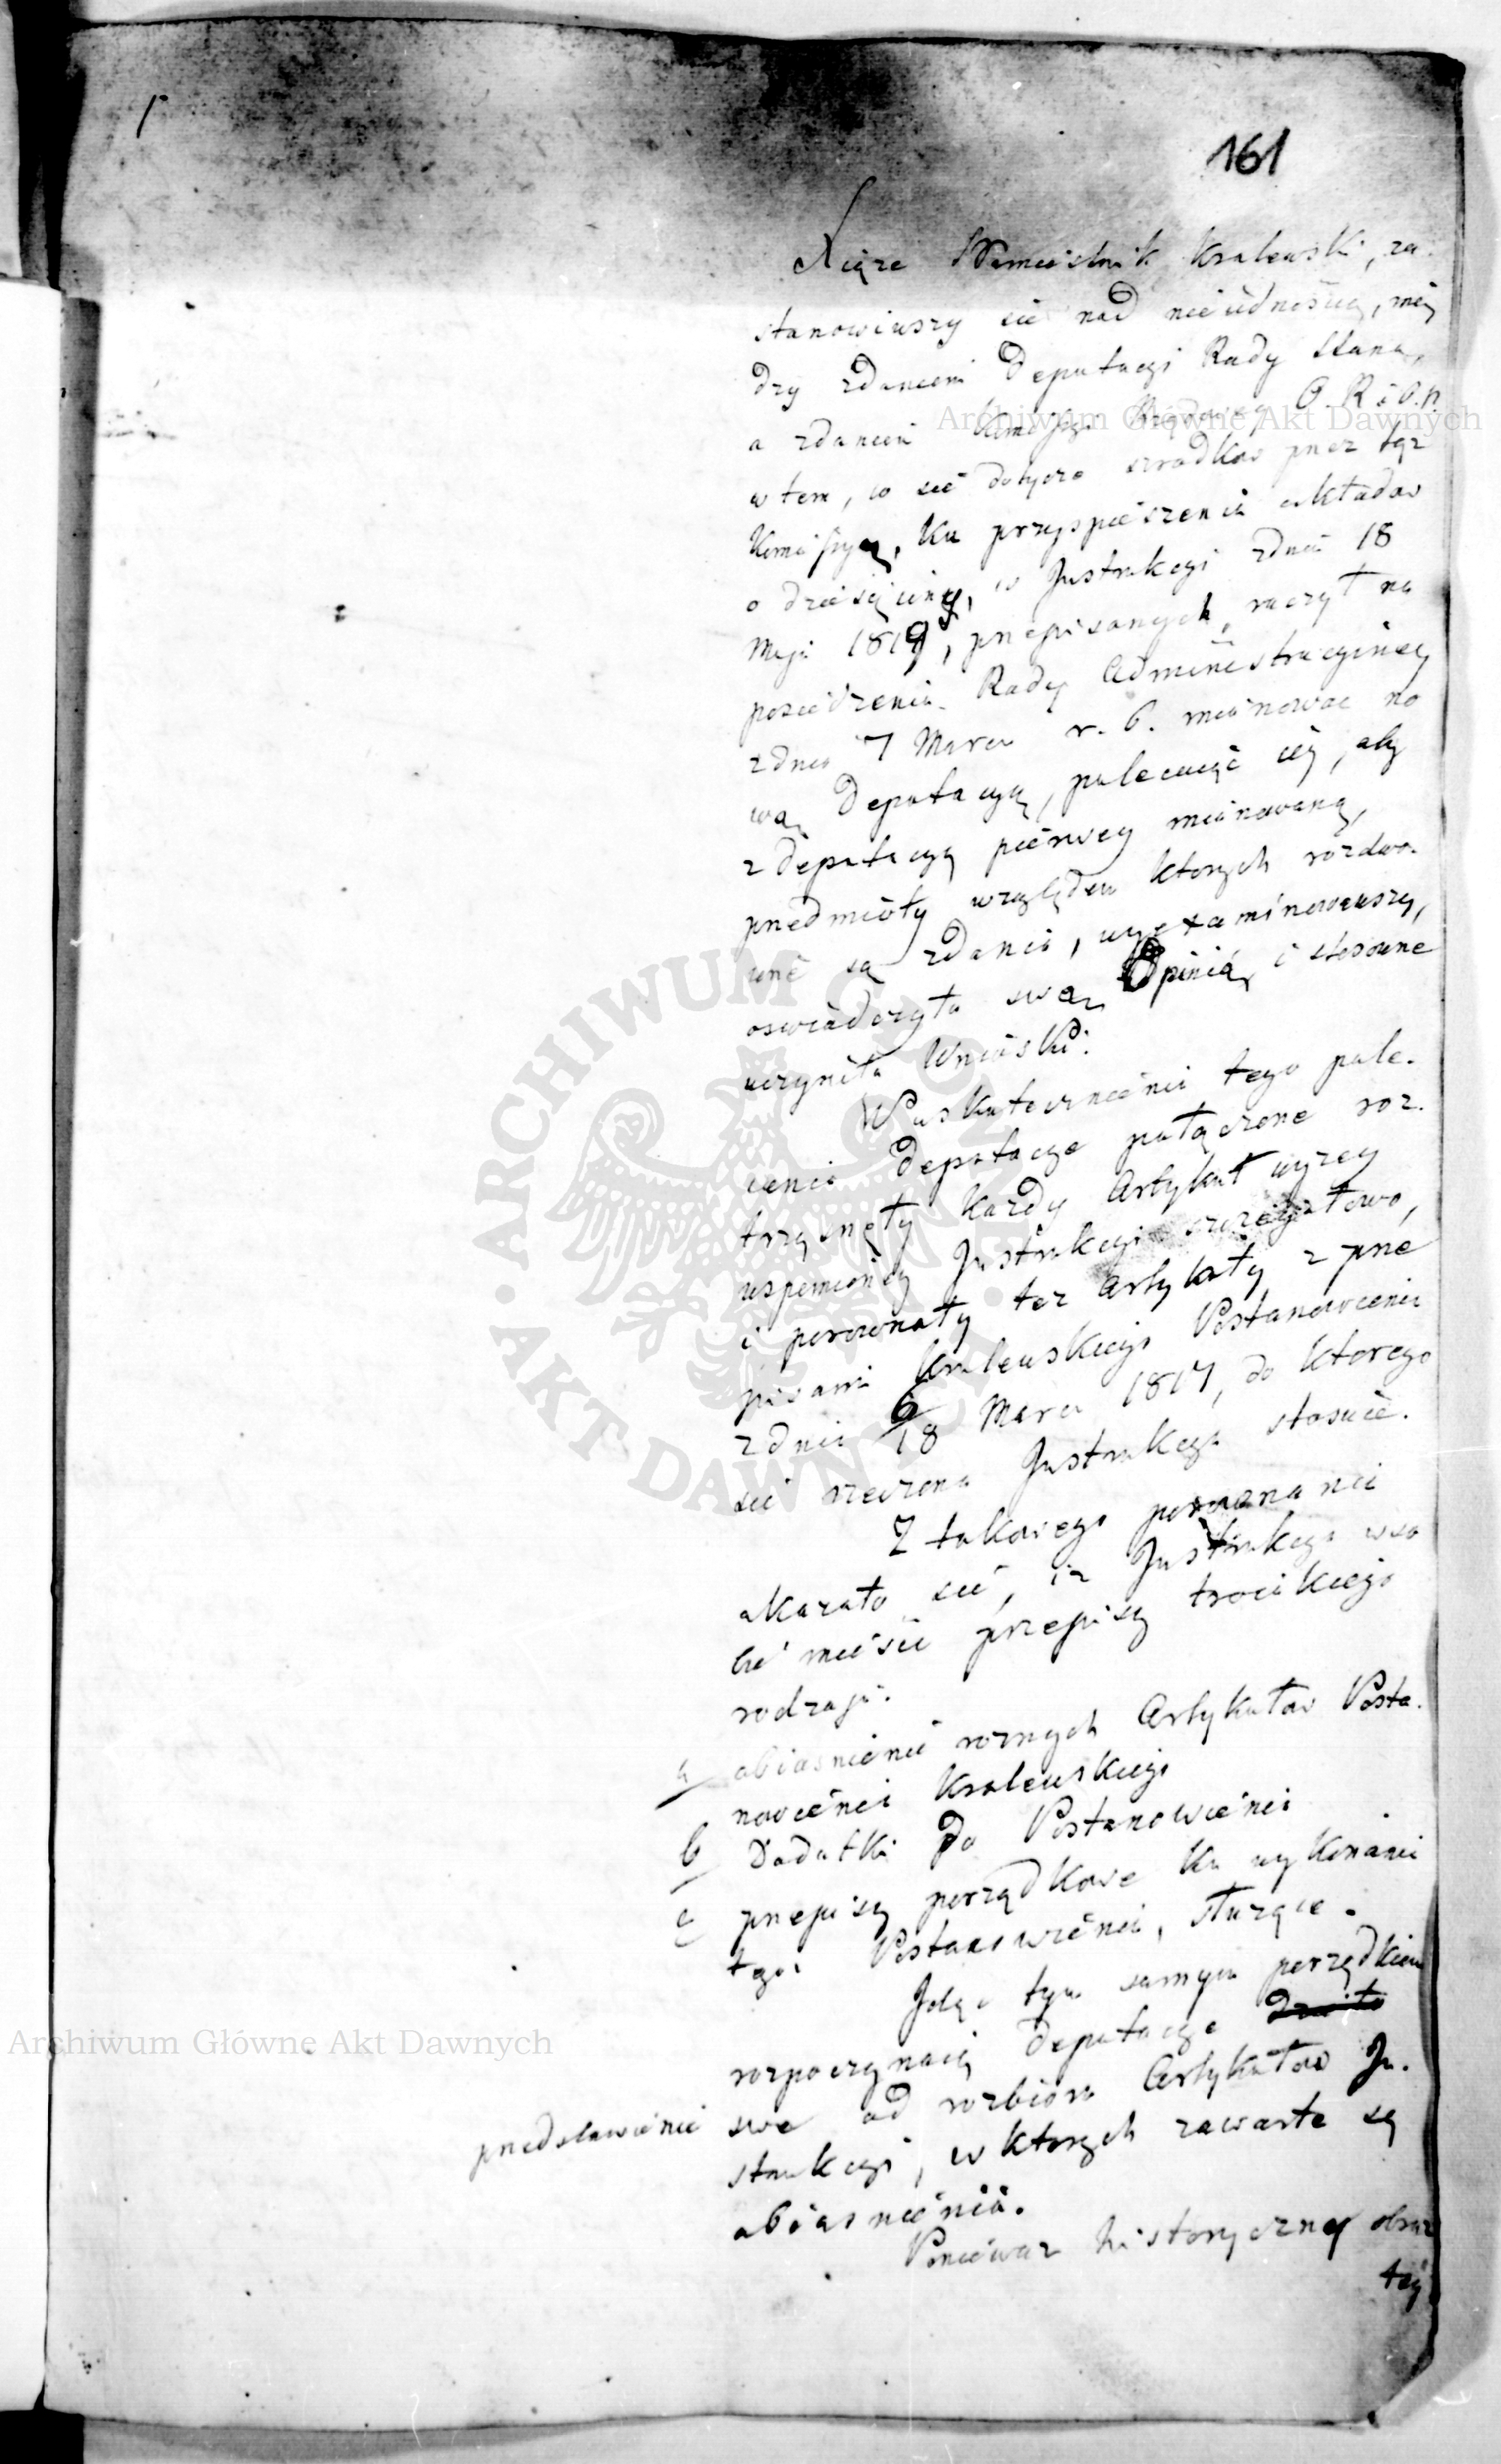 161
Xiąże Namiestnik Krolewski, za-
stanowiwszy się nad nieiednością, mię
dzy zdaniem Deputacyi Rady Stanu,
a zdaniem Komissyi Rządowey O. R. i O. P.
w tem, co się dotycze srzodkow przez tęz
Komissyą, ku przyspieszeniu układow
o dziesięciny, w Instrukcyi z dnia 18
Maja 1819, przepisanych, raczył na
posiedzeniu Rady Administracyiney
z dnia 7 Marca r. b. mianować no
wą Deputacyą, polecaiąc iey, aby
z Deputacyą pierwey mianowaną,
przedmioty względem ktorych rozdwo-
ione są zdania, wyexaminowawszy,
oswiadczyła swą Opinią i stosowne
uczyniła Wnioski.
W uskutecznieniu tego pole-
cenia Deputacye połączone roz-
trząsnęły każdy Artykuł wyzey
wspomnioney Instrukcyi szczegułowo,
i porownały tez Artykuły z prze
pisami Krolewskiego Postanowienia
z dnia 6/18 Marca 1817, do ktorego
się rzeczona Instrukcya stosuie.
Z takowego porownania
okazało się, iz Instrukcya w so
bie miesci przepisy troiakiego
rodzaju.
a obiasnienie roznych Artykułow Posta-
nowienia Krolewskiego
b Dodatki do Postanowienia
c przepisy porządkowe ku wykonaniu
tego Postanowienia, służące.
Idąc tym samym porządkiem
rozpoczynaią Deputacye
przedstawienie swe od rozbioru Artykułow In-
strukcyi, w ktorych zawarte są
obiasnienia.
Poniewaz historyczny obraz
tey
Archiwum Główne Akt Dawnych
Archiwum Główne Akt Dawnych
ARCHIWUM GŁÓWNE AKT DAWNYCH